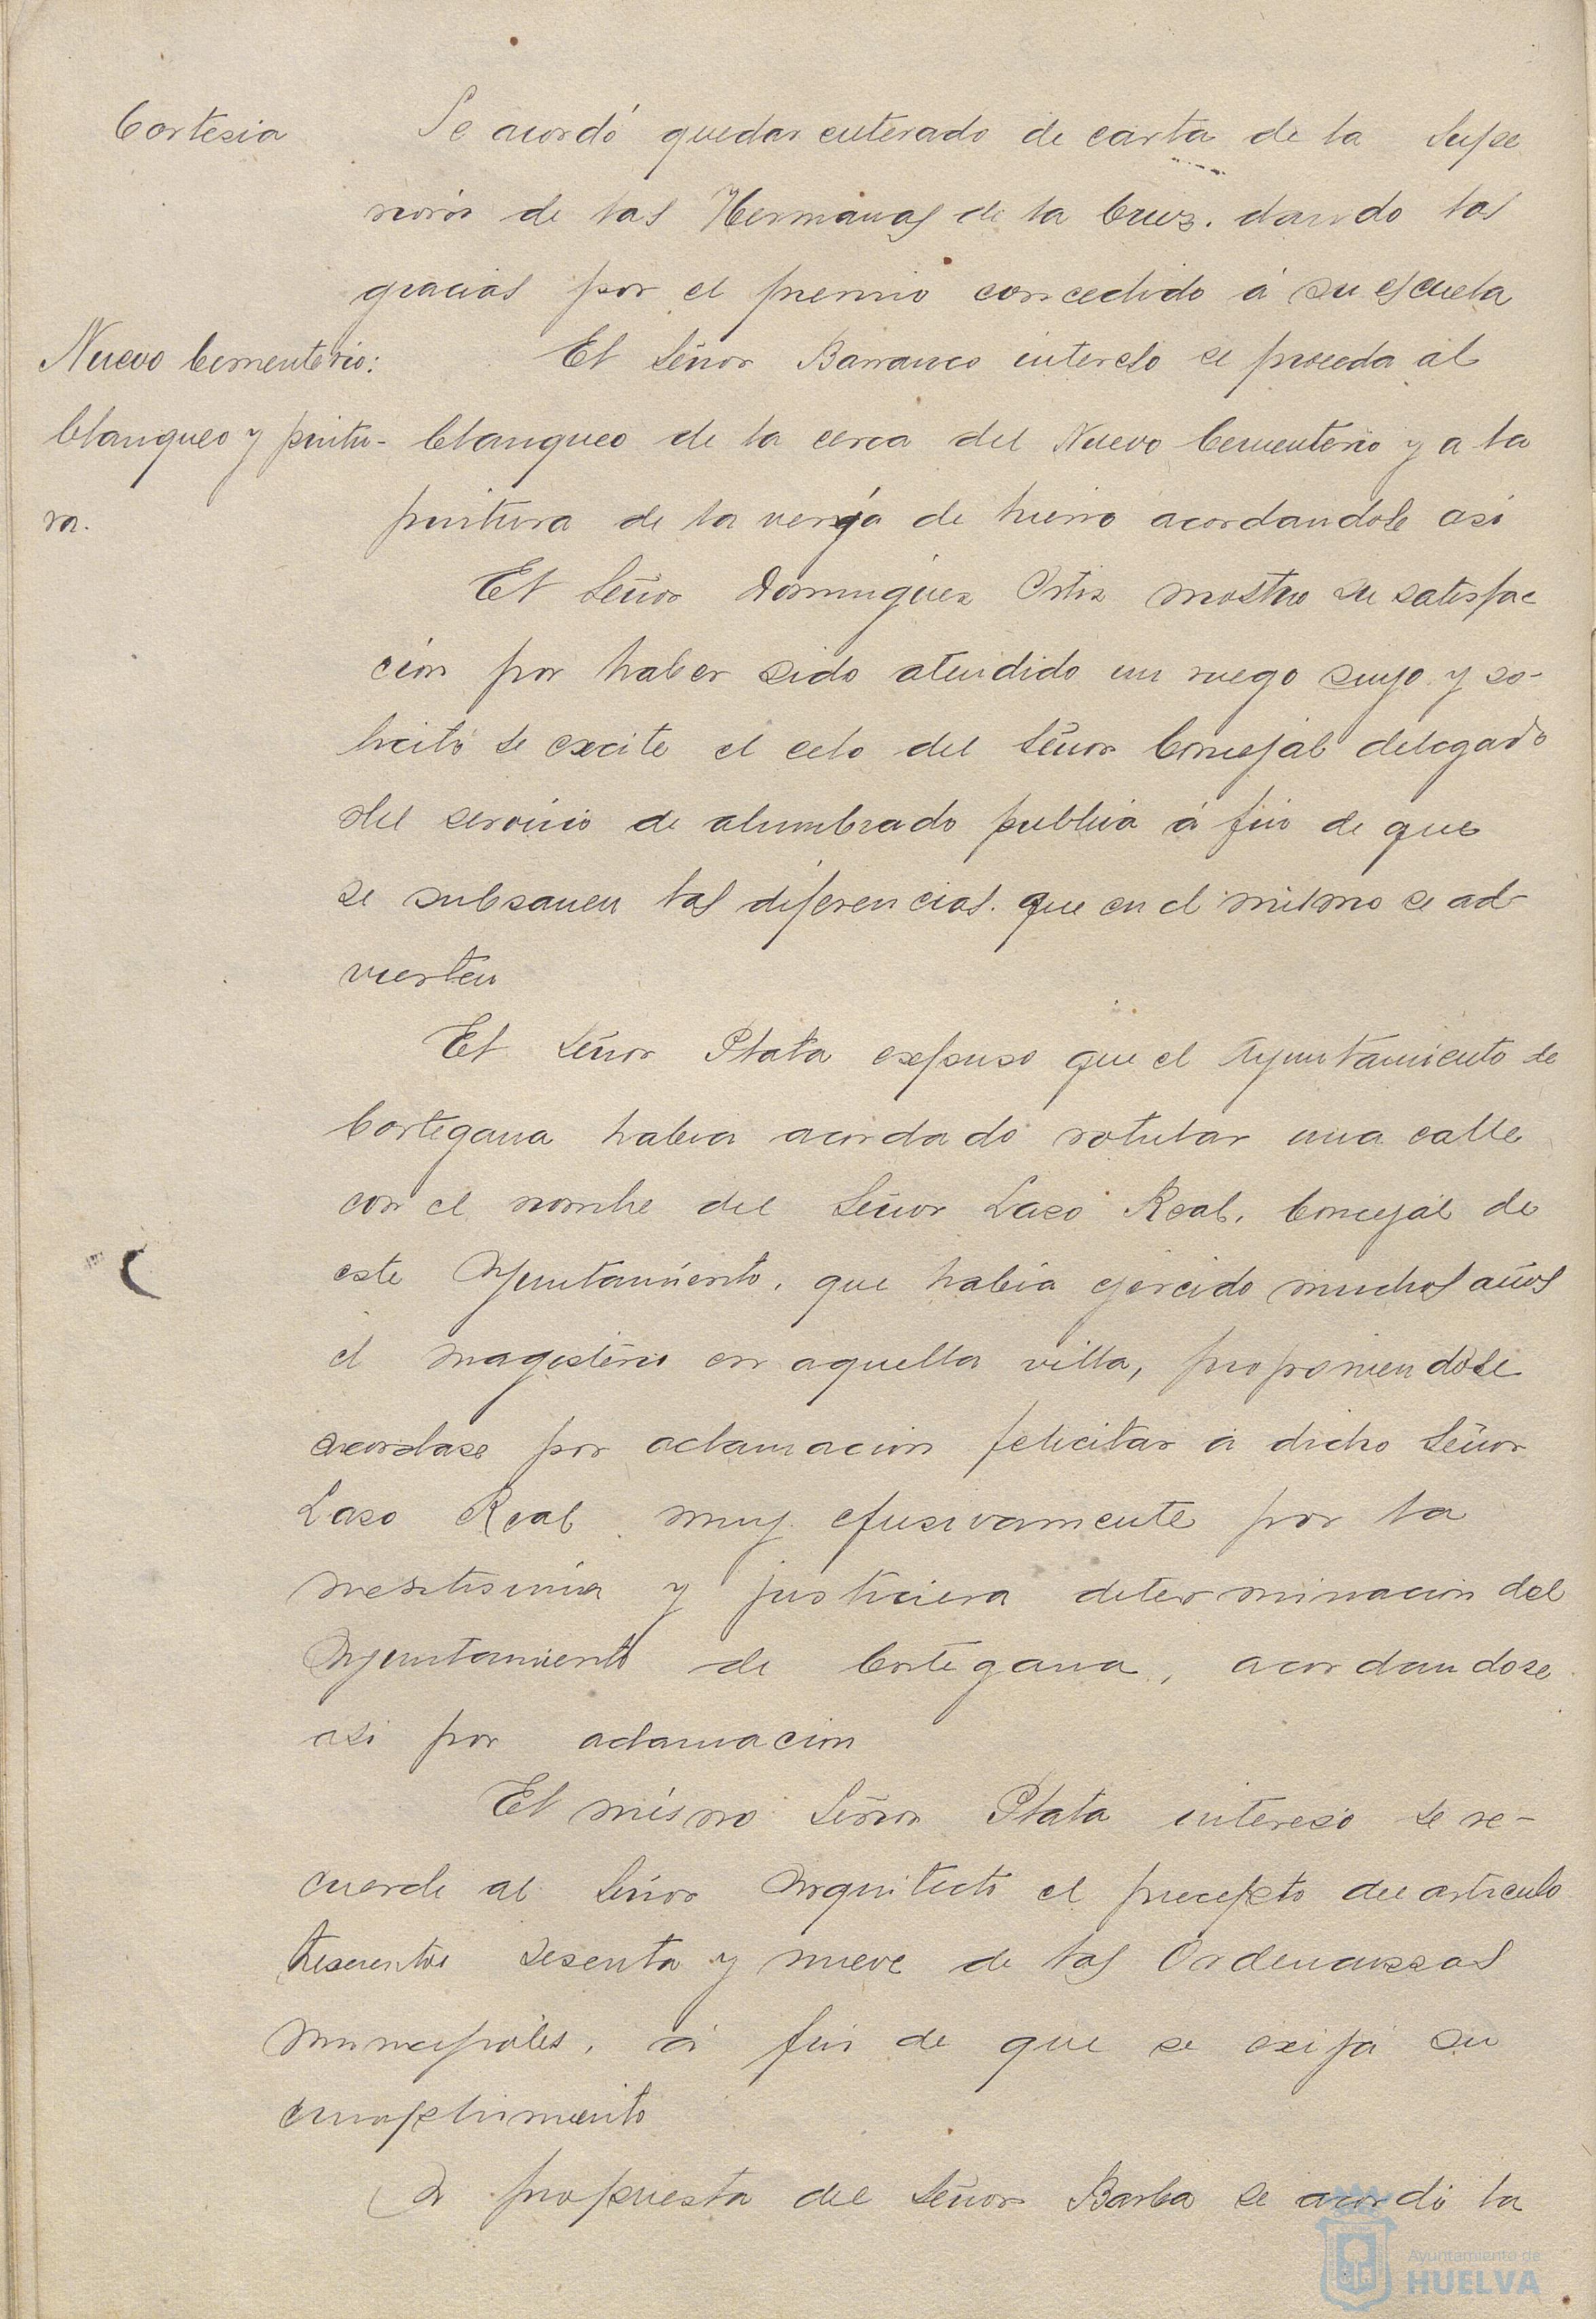 Cortesia
Se acordó quedar enterado de carta de la Supe
riora de las Hermanas de la Cruz. dando las
gracias por el premio concedido á su escuela
Nuevo Cementerio:
blanqueo y pintu-
ra.
El Señor Barranco intereso se proceda al
blanqueo de la cerca del Nuevo Cementerio y a la
pintura de la verja de hierro acordandose asi
El Señor Dominguez Ortiz mostro su satisfac
cion por haber sido atendido un ruego suyo y so-
licitó se excite el celo del Señor Concejal delegado
del servicio de alumbrado publico á fin de que
se subsanen las diferencias. que en el mismo se ad-
vierten
El Señor Plata expuso que el Ayuntamiento de
Cortegana habia acordado rotular una calle
con el nombre del Señor Laso Real, Concejal de
este Ayuntamiento, que habia ejercido muchos años
el magisterio en aquella villa, proponiendose
acordase por aclamacion felicitar á dicho Señor
Laso Real muy efusivamente por la
meritisima y justiciera determinacion del
Ayuntamiento de Cortegana, acordandose
asi por aclamacion
El mismo Señor Plata intereso se re-
cuerde al Señor Arquitecto el precepto del articulo
trescientos sesenta y nueve de las Ordenanzas
municipales, á fin de que se exija su
cumplimiento
A propuesta del Señor Barba se acordó la
Ayuntamiento de
HUELVA